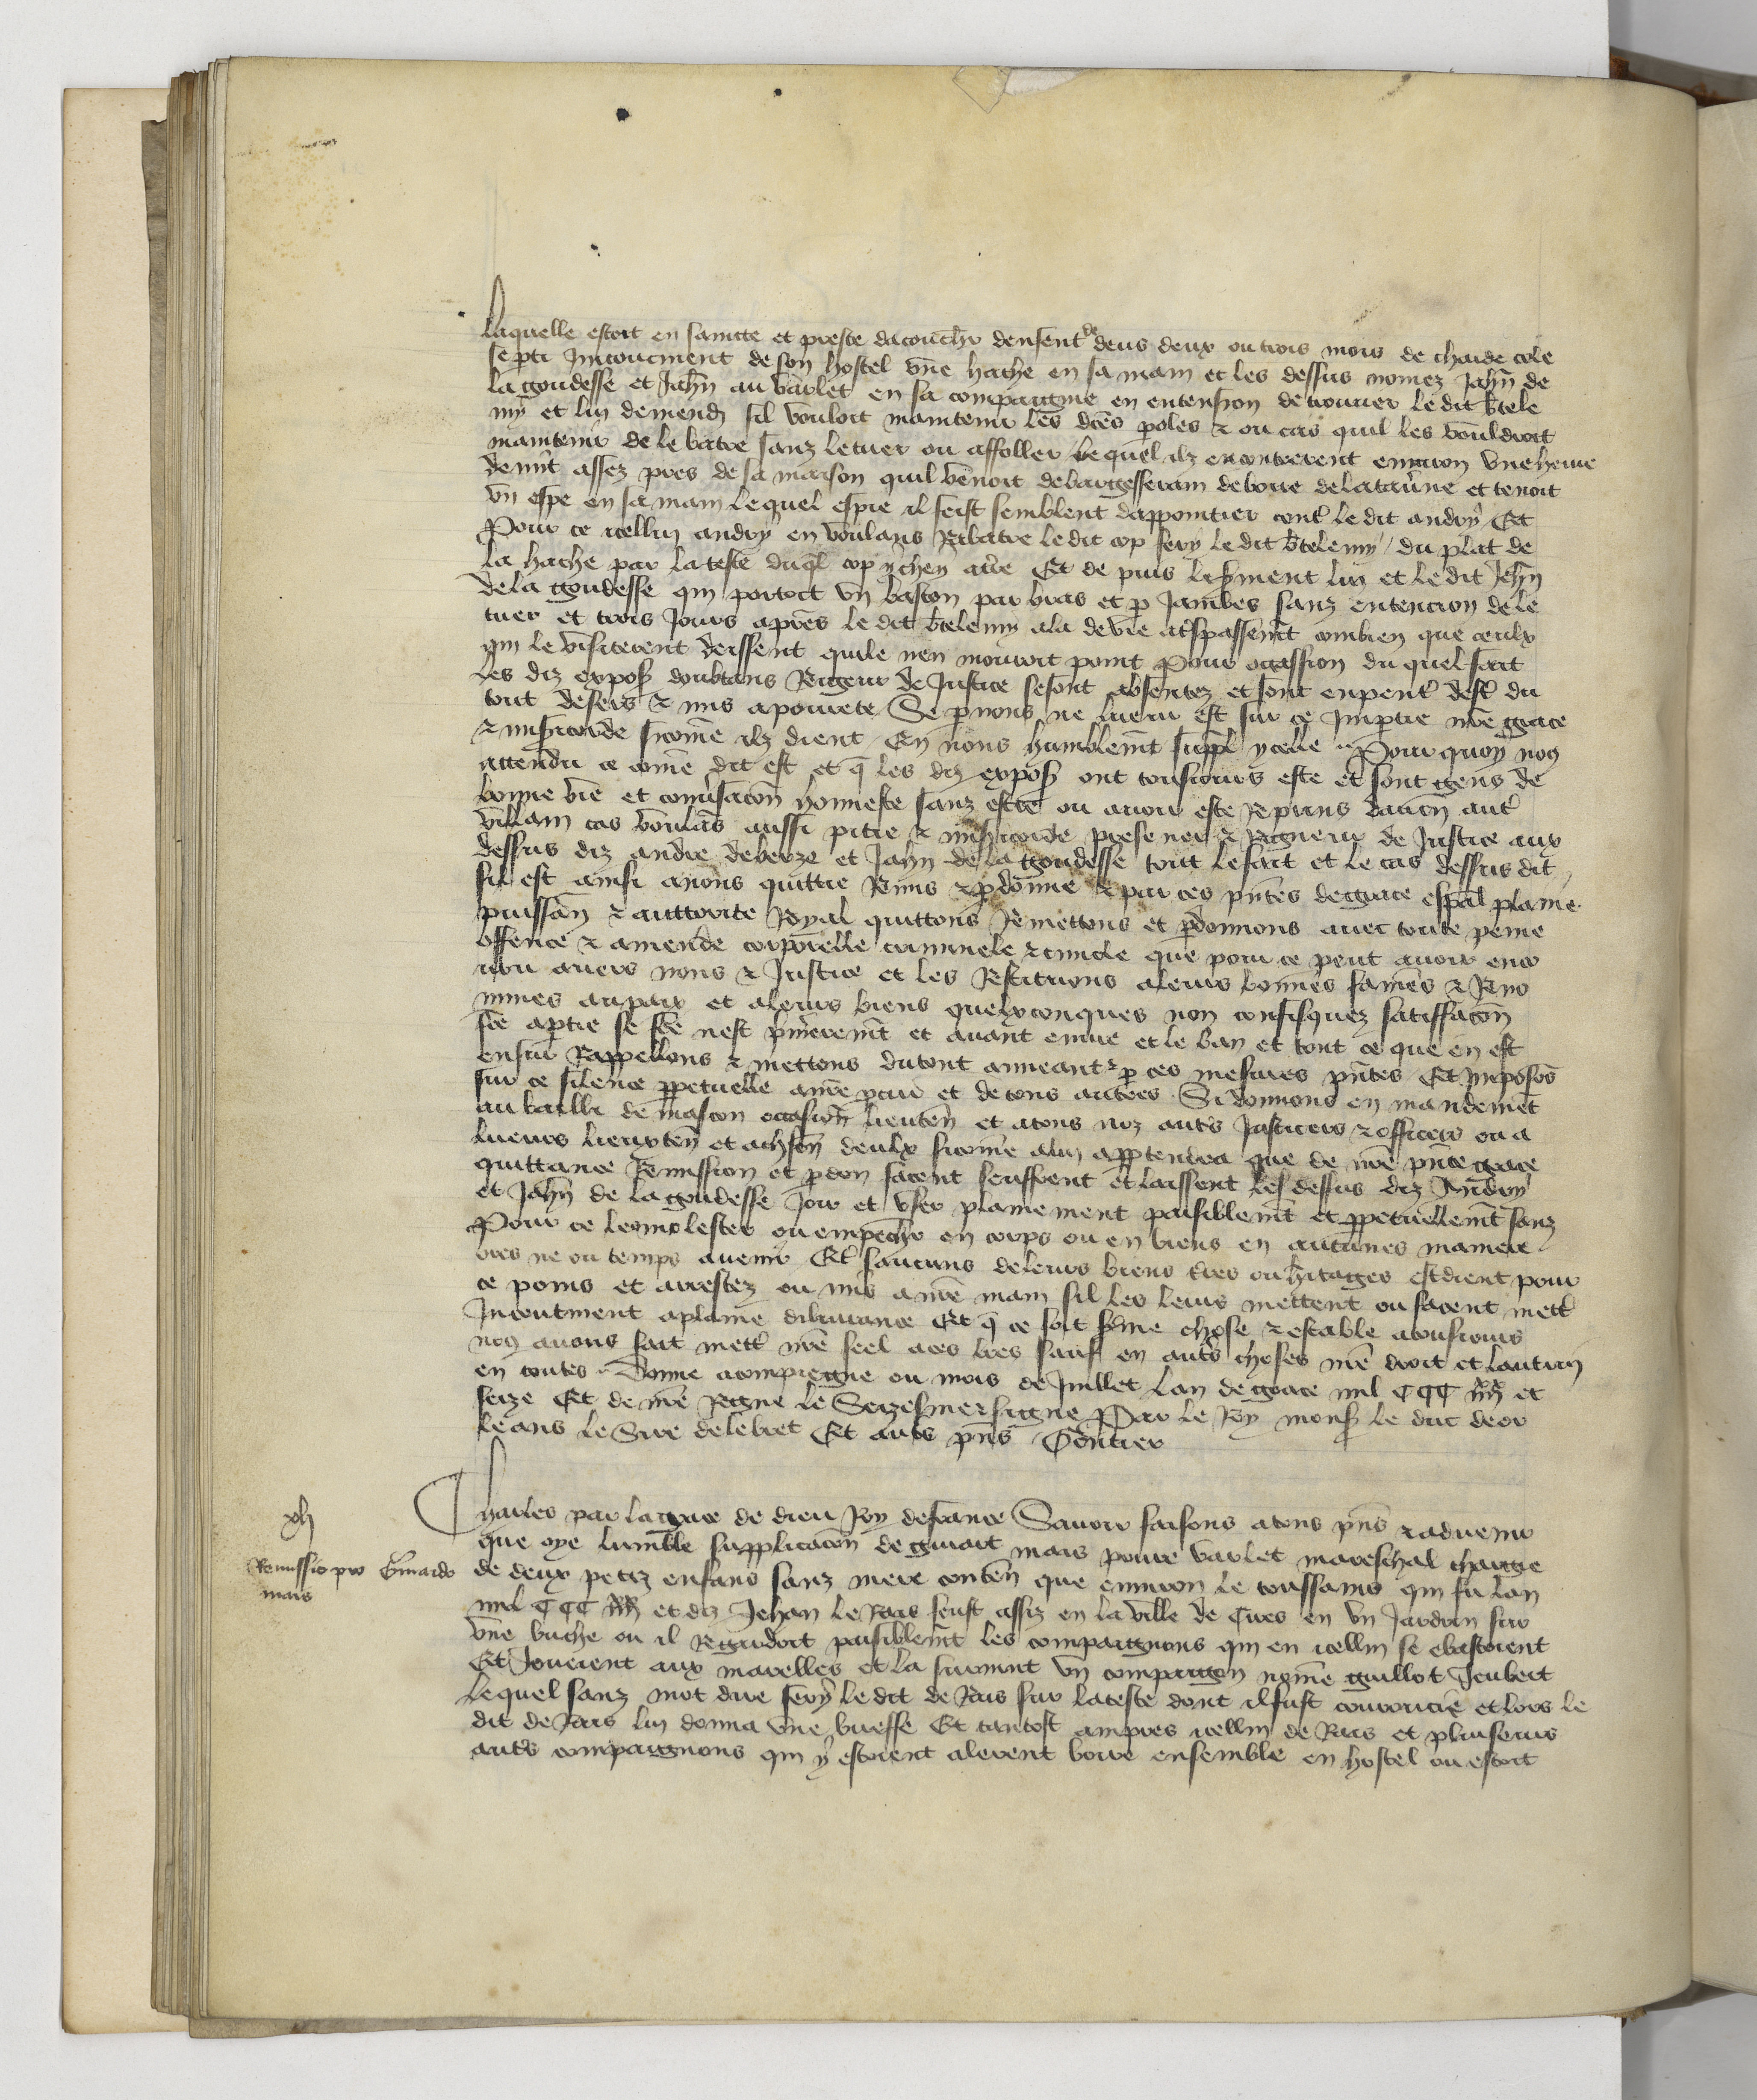 laquelle estoit en saincte et preste dacouch̄r denfent de deus deux ou trois mois de chaude cole
se pti Incontinent de son hostel vne hache en sa main et les dessus nomez Jah̄n de
la goudesse et Jah̄n au varlet en sa compaignie en entension de trouuer le dit b̄tele
my et luy demend̄ sil vouloit maintenir les dc̄es poles ⁊ ou cas quil les vouldroit
maintenir de le batre sanz le tuer ou affoller le quel ilz encontrerent enuiron vne heure
de nuit assez pres de sa maison quil venoit de boire de la taūne et tenoit
vn espe en sa main le quel espie il feist semblent dappointier cont̄ le dit andry Et
Pour ce icellui andry en voulans Rebatre le dit cop fery le dit b̄telemy du plat de
la hache par la teste duql̄ cop ychey at̄re Et de puis les̄ment lui et le dit Jeh̄n
de la goudesse qui portoit vn baston par bras et p Jambes sanz entencion de le
tuer et trois Jours apres le dit b̄telemy ala de vie at̄spassem̄t combien que ceulx
qui le visiterent deissent quile nen mouroit point Pour ocassion du quel fait
les diz expos̄ doubtans Rigeur de Justice se sont absentez et sont en pent̄ dest̄ du
tout desers ⁊ mis a pourete Se p nous ne lueur est sur ce Imptie nr̄e grace
⁊ miscorde sicom̄e ilz dient En nous humblem̄t suppl̄ ycelle Pour quoy no9
attendu ce com̄e dit est et q̄ les diz expos̄ ont tousiours este et sont gens de
bonne vie et conūsacōn honneste sanz estre ou auoir este Reprins daucū aut̄
villain cas voulās aussi pitie ⁊ miscorde preferer ⁊ Rigueur de Justice aux
dessus diz andre deberze et Jahn de la goudesse tout le fait et le cas dessus dit
sil est ainsi auons quittie Remis ⁊ pdonne ⁊ par ces pn̄tes de grace esp̄al plaine
puissan̄ ⁊ auttorite Royal quittons Remettons et pdonnons auec toute peine
offence ⁊ amende corporelle criminele ⁊ ciuile que pour ce peut auoir enco
uru auers nous ⁊ Justice et les Restituons a leurs bonnes fames ⁊ Reno
mmes au pais et a leurs biens quelxconques non confisquez satisfacōn
fc̄e aptie se fc̄e nest pm̄ierem̄t et auant euure et le ban et tout ce que en est
ensui Rappellons ⁊ mettons du tout anneant p ces mesmes pn̄tes Et Imposons
sur ce silence ppetuelle anr̄e pcur et de tous autres Si donnons en mandem̄t
au bailli de mascon lieuten̄ et atous noz aut̄s Justiciers ⁊ officiers ou a
lueurs lieuxten̄ et ach̄sn̄ deulx sicom̄e alui apptendra que de nr̄e pn̄te grace
quittance Remission et pdon facent seuffrent et laissent les dessus diz Andry
et Jahn̄ de la goudesse Joir et vser plainement paisiblem̄t et ppetuellem̄t sanz
Pour ce les molester ou empesch̄r en corps ou en biens en aucunes maniere
ores ne ou temps auenir Et saucuns de leurs biens t̄res ou h̄itages estoient pour
ce poins et arrestez ou mis a nr̄e main sil les leurs mettent ou facent mett̄
Incontment aplaine deliurance Et q̄ ce soit ferme chose ⁊ estable atousiours
no9 auons fait mett̄ nr̄e seel aces lr̄es sauf en aut̄s choses nr̄e droit et lautruy
en toutes Donne a compiegne ou mois de Juillet Lan de grace mil CCC iiiixx et
seize Et de nr̄e Regne le Seizesme signe Par le Roy mons̄ le duc de or
leans le Sire delebret Et aut̄s pn̄s Gontier
xli
Remissio pro Guiardo
mars
Charles par la grace de dieu Roy de france Sauoir faisons atous pn̄s ⁊ aduenir
que oye lumble supplicacōn de guiart mars poure varlet mareschal chargie
de deux petiz enfans sanz mere conten̄ que enuiron le toussains qui fu lan
mil CCC iiiixx et diz Jehan le Rais feust assiz en la ville de Cires en vn Jardrin sur
vne buche ou il Regardoit paisiblem̄t les compaignons qui en icellui se esbastoient
Et Joueient aux marelles et la suruint vn compaignon nom̄e guillot Jeubert
Lequel sanz mot dire fery le dit de Rais sur la teste dont il fust courroucie et lors le
dit de Rais lui donna vne buffe Et tantost ampres icellui de Rais et pluseurs
aut̄s compaignons qui y estoient alerent boire ensemble en hostel ou estoit